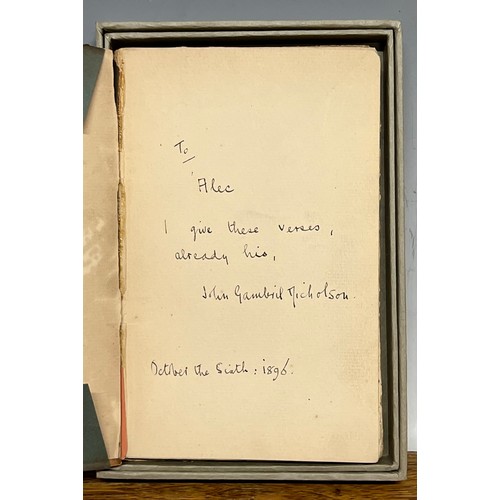 To
Alec
I give these verses,
already his,
John Gambril Nicholson.
October the Sixth : 1896.